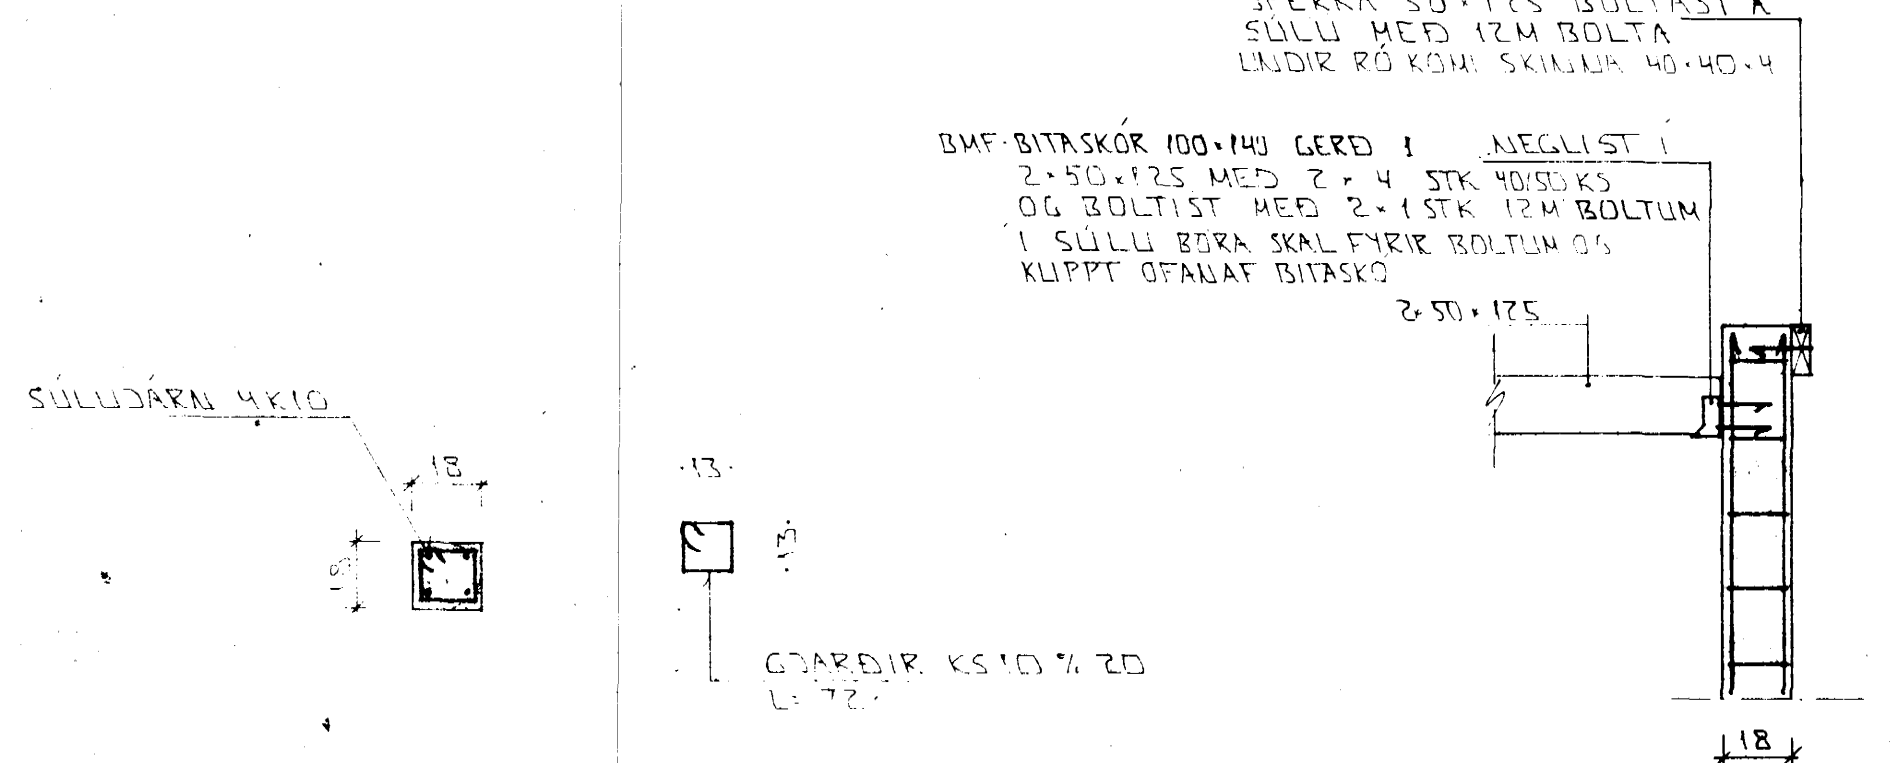 SPERRA 50×125 BOLTAST Á
SÚLU MEÐ 12M BOLTA
UNDIR RÓ KOMI SKINNA 40·40×4
BMF·BITASKÓR 100×140 GERÐ 1 NEGLIST Í
2×50×125 MEÐ 2×4 STK 40/50 KS
OG BOLTIST MEÐ 2×1 STK 12M BOLTUM
Í SÚLU BORA SKAL FYRIR BOLTUM OG
KLIPPT OFANAF BITASKÓ
2×50×125
SÚLUJÁRN 4K10
18
18
13
13
GJARÐIR KS10 % 20
L= 72
18